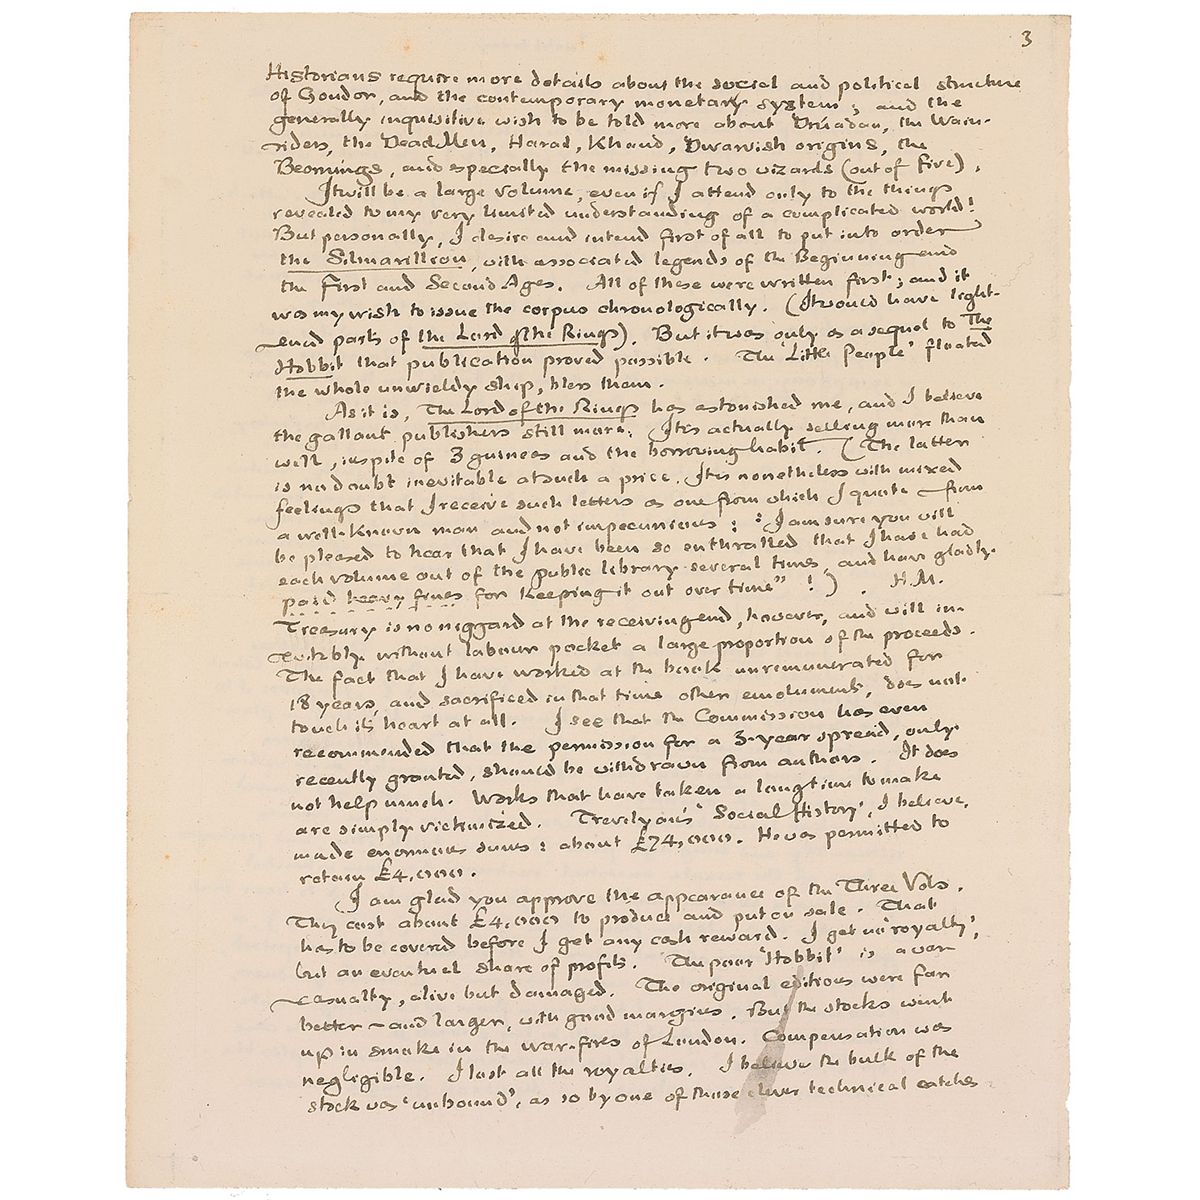 3
Historians require more details about the social and political structure
of Gondor, and the contemporary monetary system; and the
generally inquisitive wish to be told more about Drúadan, the Wain-
riders, the Dead Men, Harad, Khand, Dwarvish origins, the
Beornings, and specially the missing two wizards (out of Five).
It will be a large volume, even if I attend only to the things
revealed to my very limited understanding of a complicated world!
But personally, I desire and intend first of all to put into order
the Silmarillion, with associated legends of the Beginning and
the First and Second Ages. All of these were written first; and it
was my wish to issue the corpus chronologically. (It would have light-
ened parts of the Lord of the Rings). But it was only as a sequel to The
Hobbit that publication proved possible. The 'Little People' floated
the whole unwieldy ship, bless them.
As it is, The Lord of the Rings has astonished me, and I believe
the gallant publishers still more. It is actually selling more than
well, in spite of 3 guineas and the borrowing habit. (The latter
is no doubt inevitable at such a price. It is nonetheless with mixed
feelings that I receive such letters as one from which I quote from
a well-known man and not impecunious: "I am sure you will
be pleased to hear that I have been so enthralled that I have had
each volume out of the public library several times, and have gladly
paid heavy fines for keeping it out over time" !) . H.M.
Treasury is no niggard at the receiving end, however, and will in-
evitably without labour pocket a large proportion of the proceeds.
The fact that I have worked at the book unremunerated for
18 years, and sacrificed in that time other emoluments, does not
touch its heart at all. I see that the Commission has even
recommended that the permission for a 3-year spread, only
recently granted, should be withdrawn from authors. It does
not help much. Works that have taken a long time to make
are simply victimized. Trevelyan's 'Social History', I believe,
made enormous sums: about £74,000. He was permitted to
retain £4,000.
I am glad you approve the appearance of the Three Vols.
They cost about £4,000 to produce and put on sale. That
has to be covered before I get any cash reward. I get no 'royalty',
but an eventual share of profits. The poor 'Hobbit' is a war
casualty, alive but damaged. The original editions were far
better – and larger, with good margins. But the stocks went
up in smoke in the war-fires of London. Compensation was
negligible. I lost all the royalties. I believe the bulk of the
stock was 'unbound', as so by one of those clever technical catches